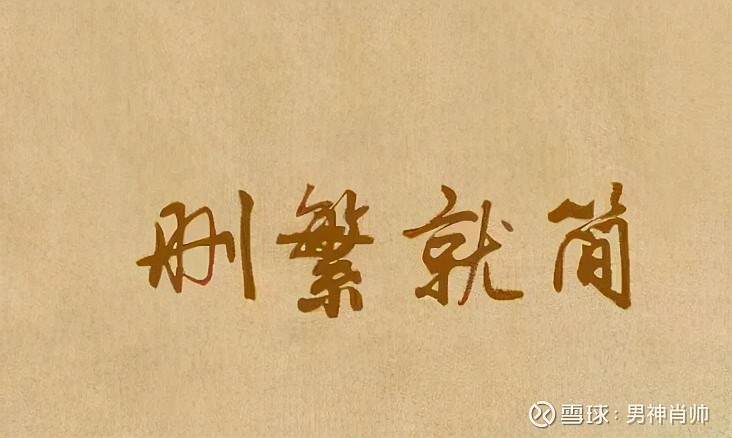 删繁就简
雪球：男神肖帅